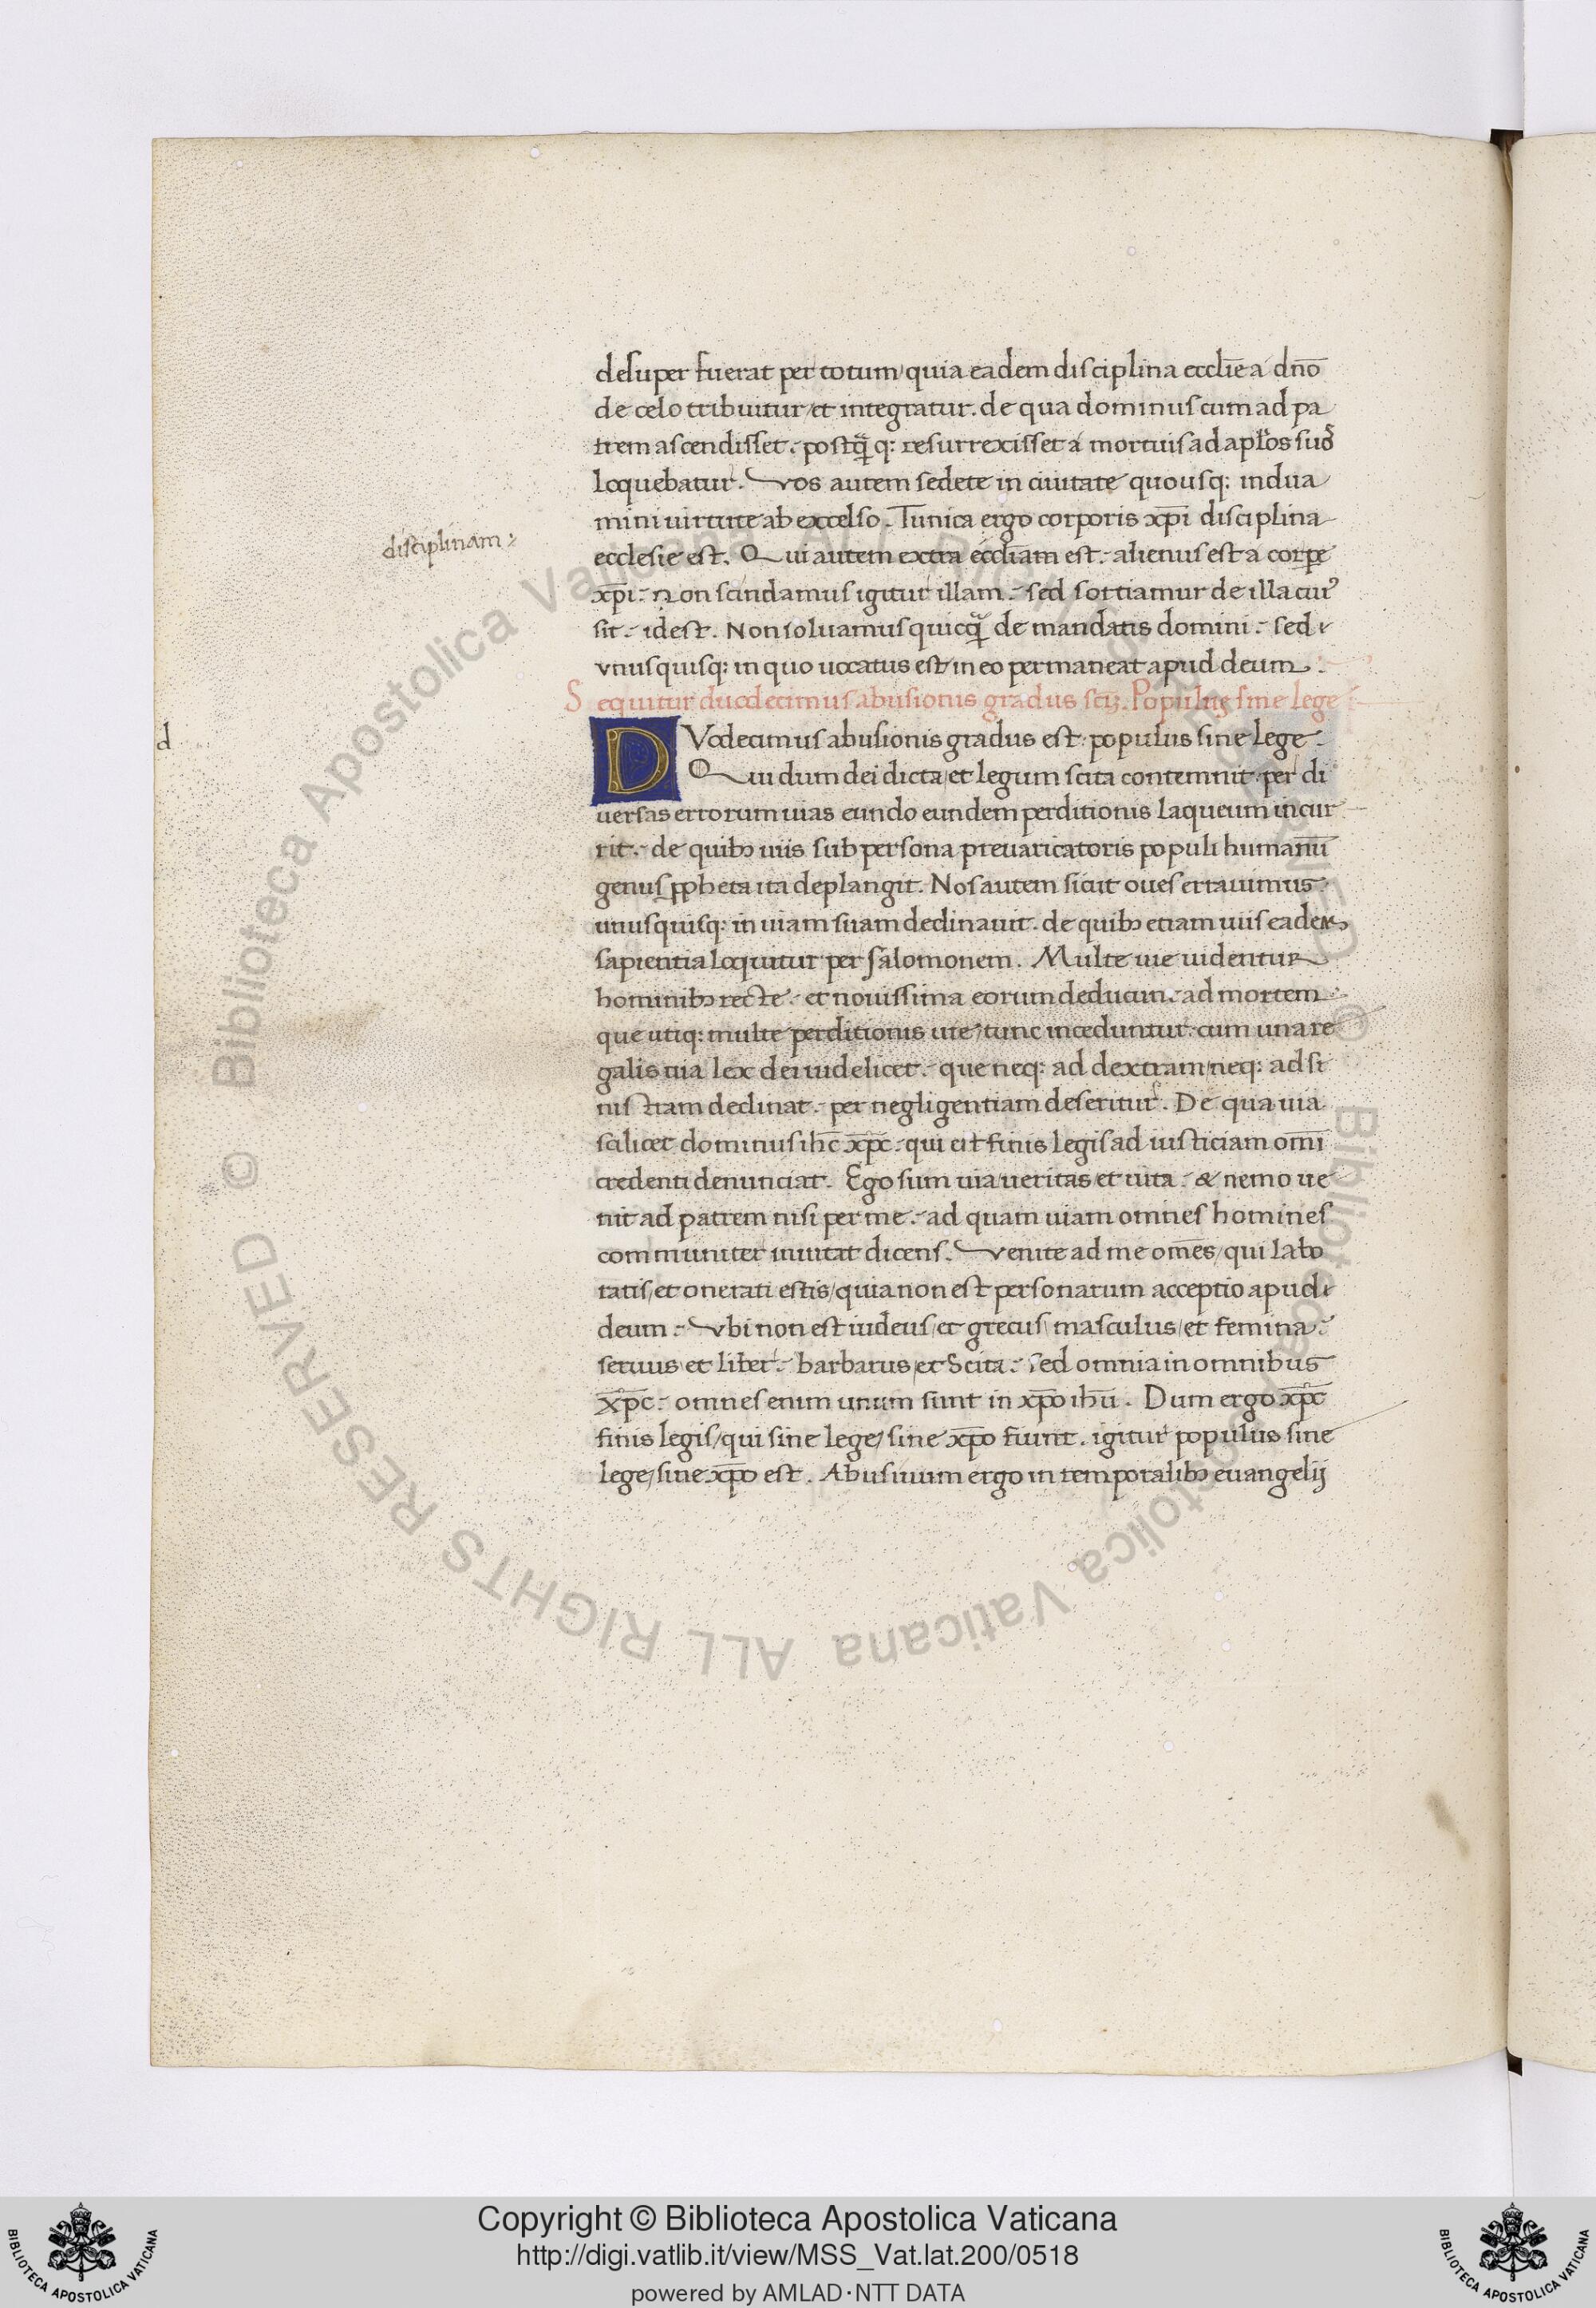 desuper fuerat per totum/quia eadem disciplina eccl̄ie a dn̄o
de celo tribuitur/et integratur. de qua dominus cum ad pa
trem ascendisset. postq̄ q: resurrexisset a mortuis ad apl̄os suos
loquebatur. Vos autem sedete in ciuitate quousq: indua
mini uirtute ab excelso. Tunica ergo corporis xp̄i disciplina
disciplinam:
ecclesie est. Qui autem extra eccl̄iam est. alienus est a corpe
xp̄i. Non scindamus igitur illam. sed sortiamur de illa cuiꝰ
sit. idest. Non soluamus quicq̄ de mandatis domini. sed
vnusquisq: in quo uocatus est/in eo permaneat apud deum.
Sequitur duodecimus abusionis gradus scꝫ. Populus sine lege
d
DVodecimus abusionis gradus est: populus sine lege.
Qui dum dei dicta/et legum scita contemnit: per di
uersas errorum uias eundo eundem perditionis laqueum incur
rit. de quibꝫ uiis sub persona preuaricatoris populi humanū
genus ꝓpheta ita deplangit. Nos autem sicut oues errauimus
unusquisq: in uiam suam declinauit. de quibꝫ etiam uiis eadem
sapientia loquitur per salomonem. Multe uie uidentur
hominibꝫ recte. et nouissima eorum deducunt ad mortem.
que utiq: multe perditionis uie/tunc inceduntur: cum una re
galis uia lex dei uidelicet. que neq: ad dextram/neq: ad si
nistram declinat. per negligentiam deseritur. De qua uia
scilicet dominus ih̄c xp̄c. qui est finis legis ad iusticiam om̄i
credenti denunciat. Ego sum uia/ueritas/et uita. & nemo ue
nit ad patrem nisi per me. ad quam uiam omnes homines
communiter inuitat dicens. Venite ad me om̄es/qui labo
ratis/et onerati estis/quia non est personarum acceptio apud
deum. Vbi non est iudeus/et grecus/masculus/et femina.
seruus et liber. barbarus/et Scita. Sed omnia in omnibus
Xp̄c. omnes enim unum sunt in xp̄o ih̄u. Dum ergo xp̄c
finis legis/qui sine lege/sine xp̄o fiunt. igitur populus sine
lege/sine xp̄o est. Abusiuum ergo in temporalibꝫ euangelij
© Biblioteca Apostolica Vaticana ALL RIGHTS RESERVED © Biblioteca Apostolica Vaticana ALL RIGHTS RESERVED
Copyright © Biblioteca Apostolica Vaticana
http://digi.vatlib.it/view/MSS_Vat.lat.200/0518
powered by AMLAD·NTT DATA
BIBLIOTECA APOSTOLICA VATICANA
BIBLIOTECA APOSTOLICA VATICANA